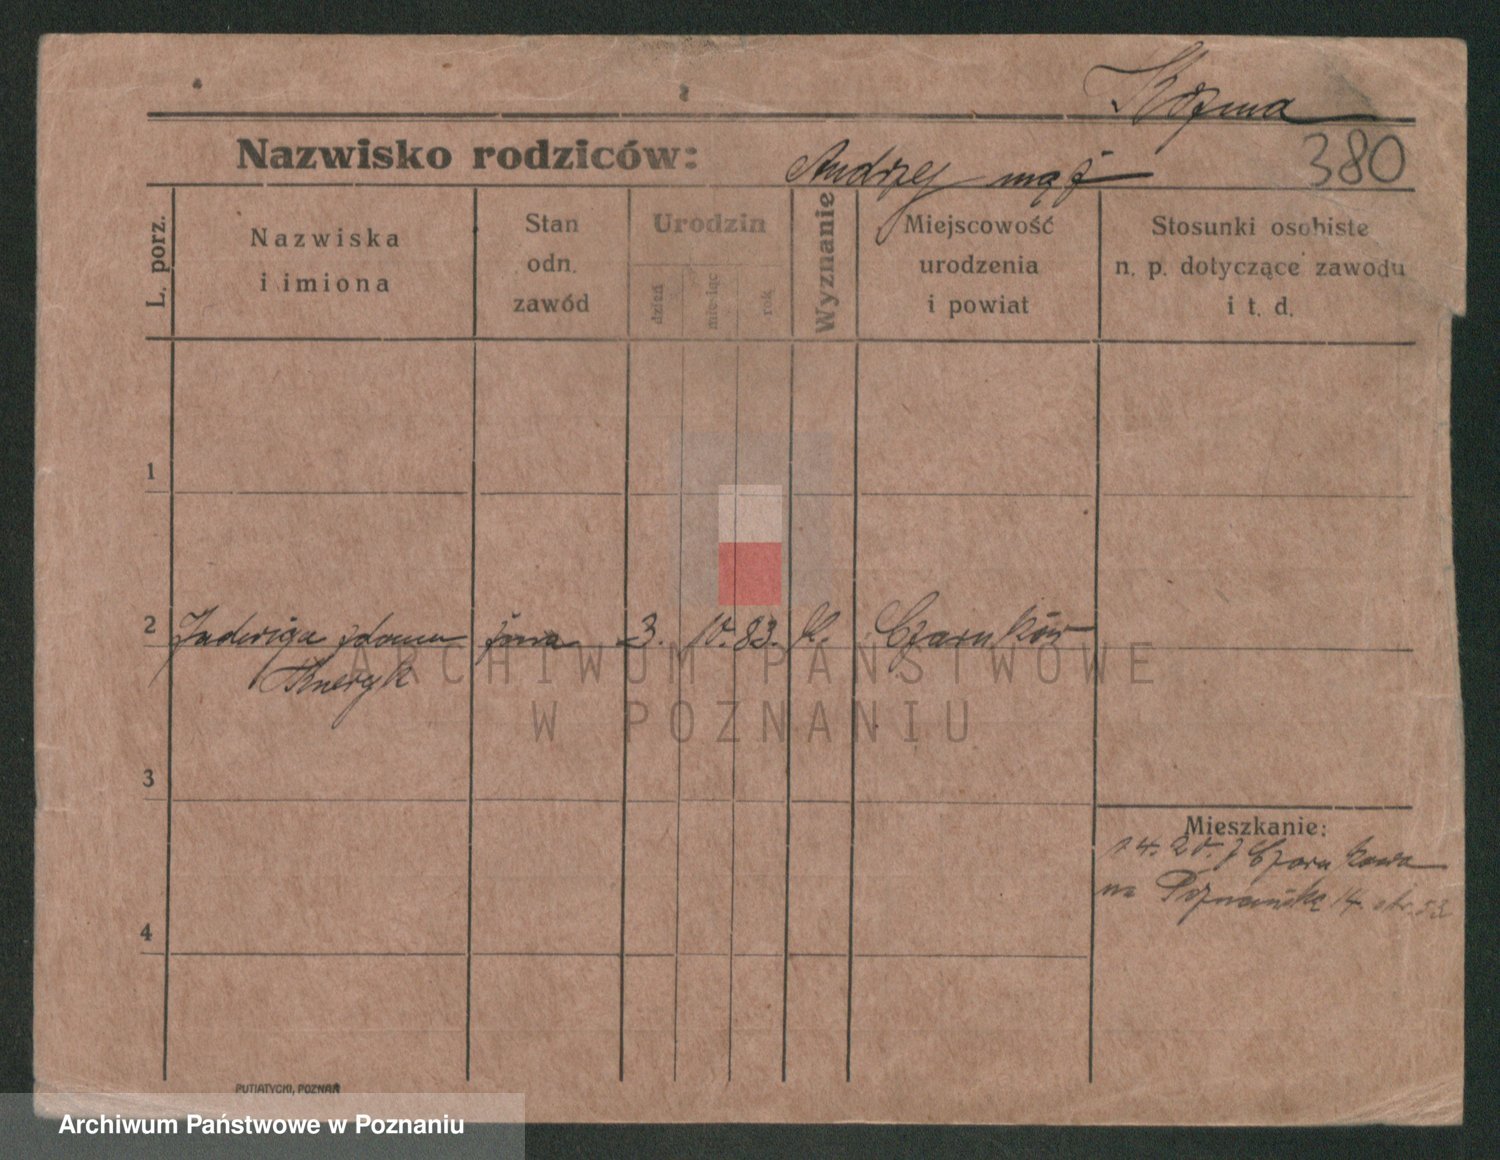 Kozma
380
Nazwisko rodziców: Andrzej mąż
L. porz.
Nazwiska
i imiona
Stan
odn.
zawód
Urodzin
dzień
miesiąc
rok
Wyznanie
Miejscowość
urodzenia
i powiat
Stosunki osobiste
n. p. dotyczące zawodu
i t. d.
1
2 Jadwiga zdomu żona 3. 10. 83. k. Czarnków
ARCHIWUM PAŃSTWOWE
W POZNANIU
3
Mieszkanie:
1.4.20. z Czarnkowa
na Poznańską 14. str. 53
4
PUTIATYCKI, POZNAŃ
Archiwum Państwowe w Poznaniu